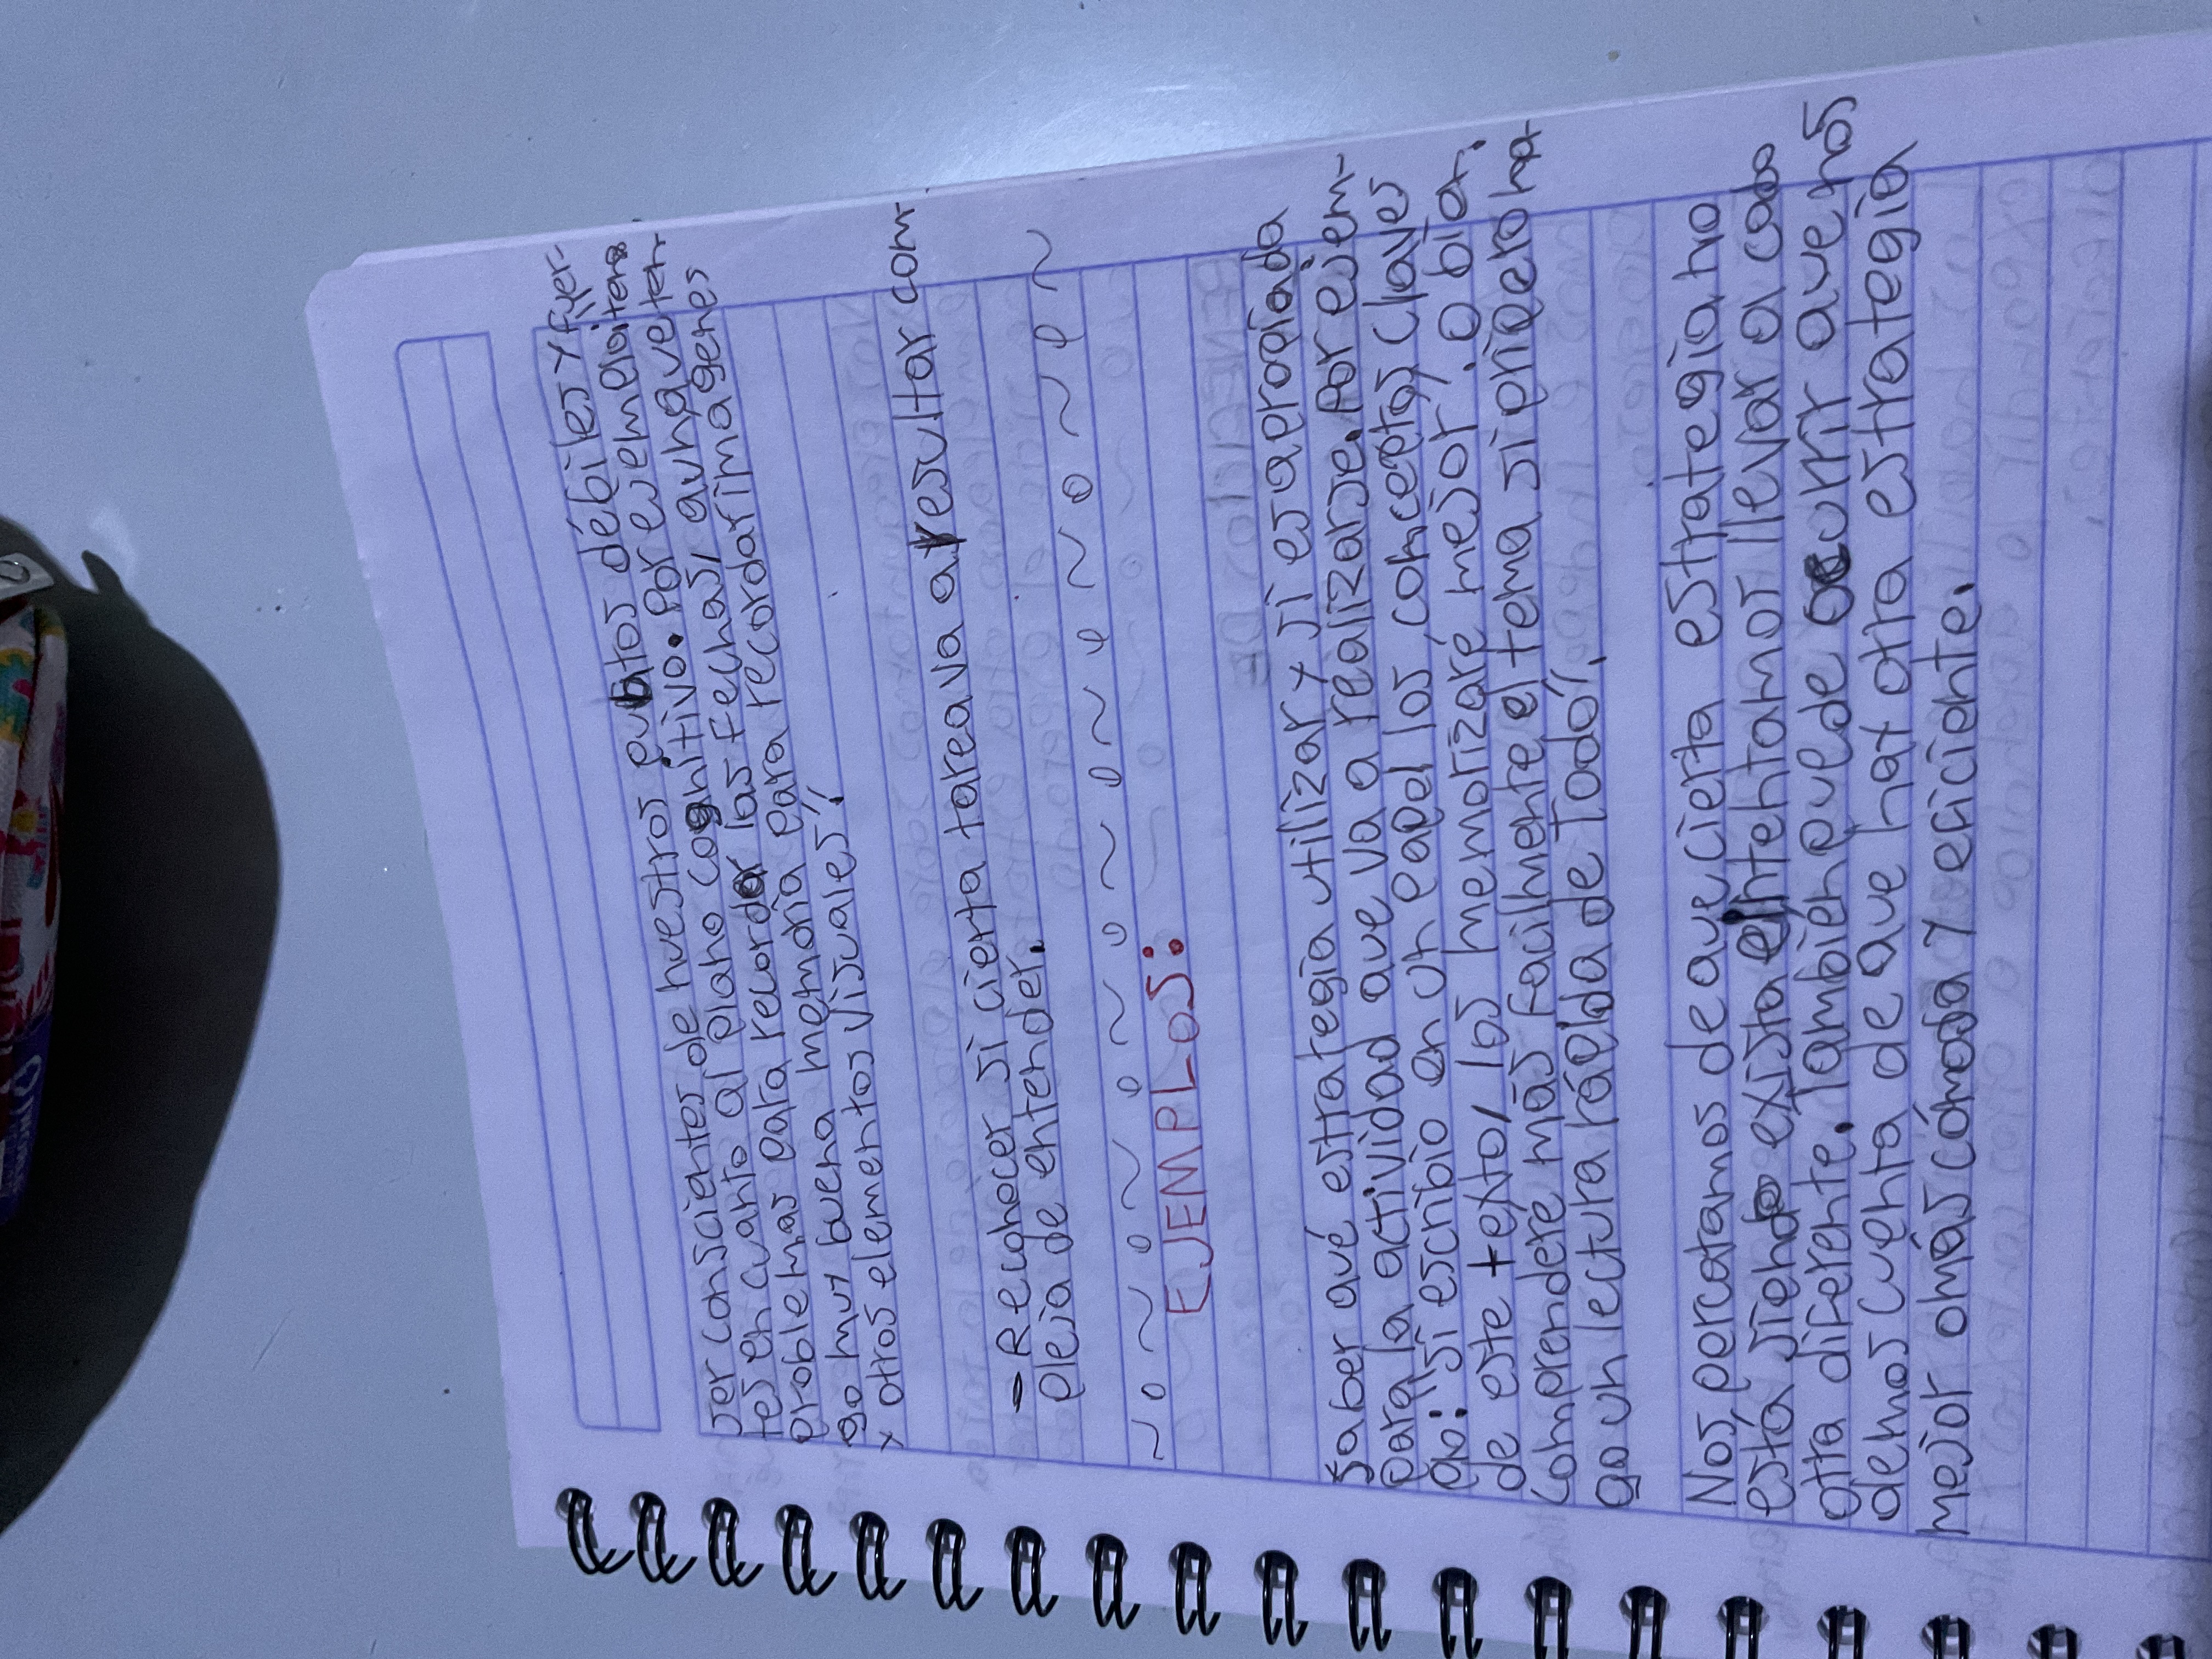 Ser conscientes de nuestros puntos débiles y fuer-
tes en cuanto al plano cognitivo. Por ejemplo: tena
problemas para recordar las fechas, aunque ten-
go muy buena memoria para recordar imagenes
y otros elementos visuales".
- Reconocer si cierta tarea va a resultar com-
pleja de entender.
EJEMPLOS:
Saber qué estrategia utilizar y si es apropiada
para la actividad que va a realizarse. Por ejem-
plo: "si escribio en un papel los conceptos claves
de este texto, los memorizaré mejor". O bien:
comprendere más facilmente el tema si primero ha-
go un lectura rápida de todo".
Nos percatamos de que cierta estrategia no
está siendo existaeintentamos llevar a cabo
otra diferente. También puede ocurrir que nos
demos cuenta de que hay otra estrategia
mejor o más cómoda y eficiente.